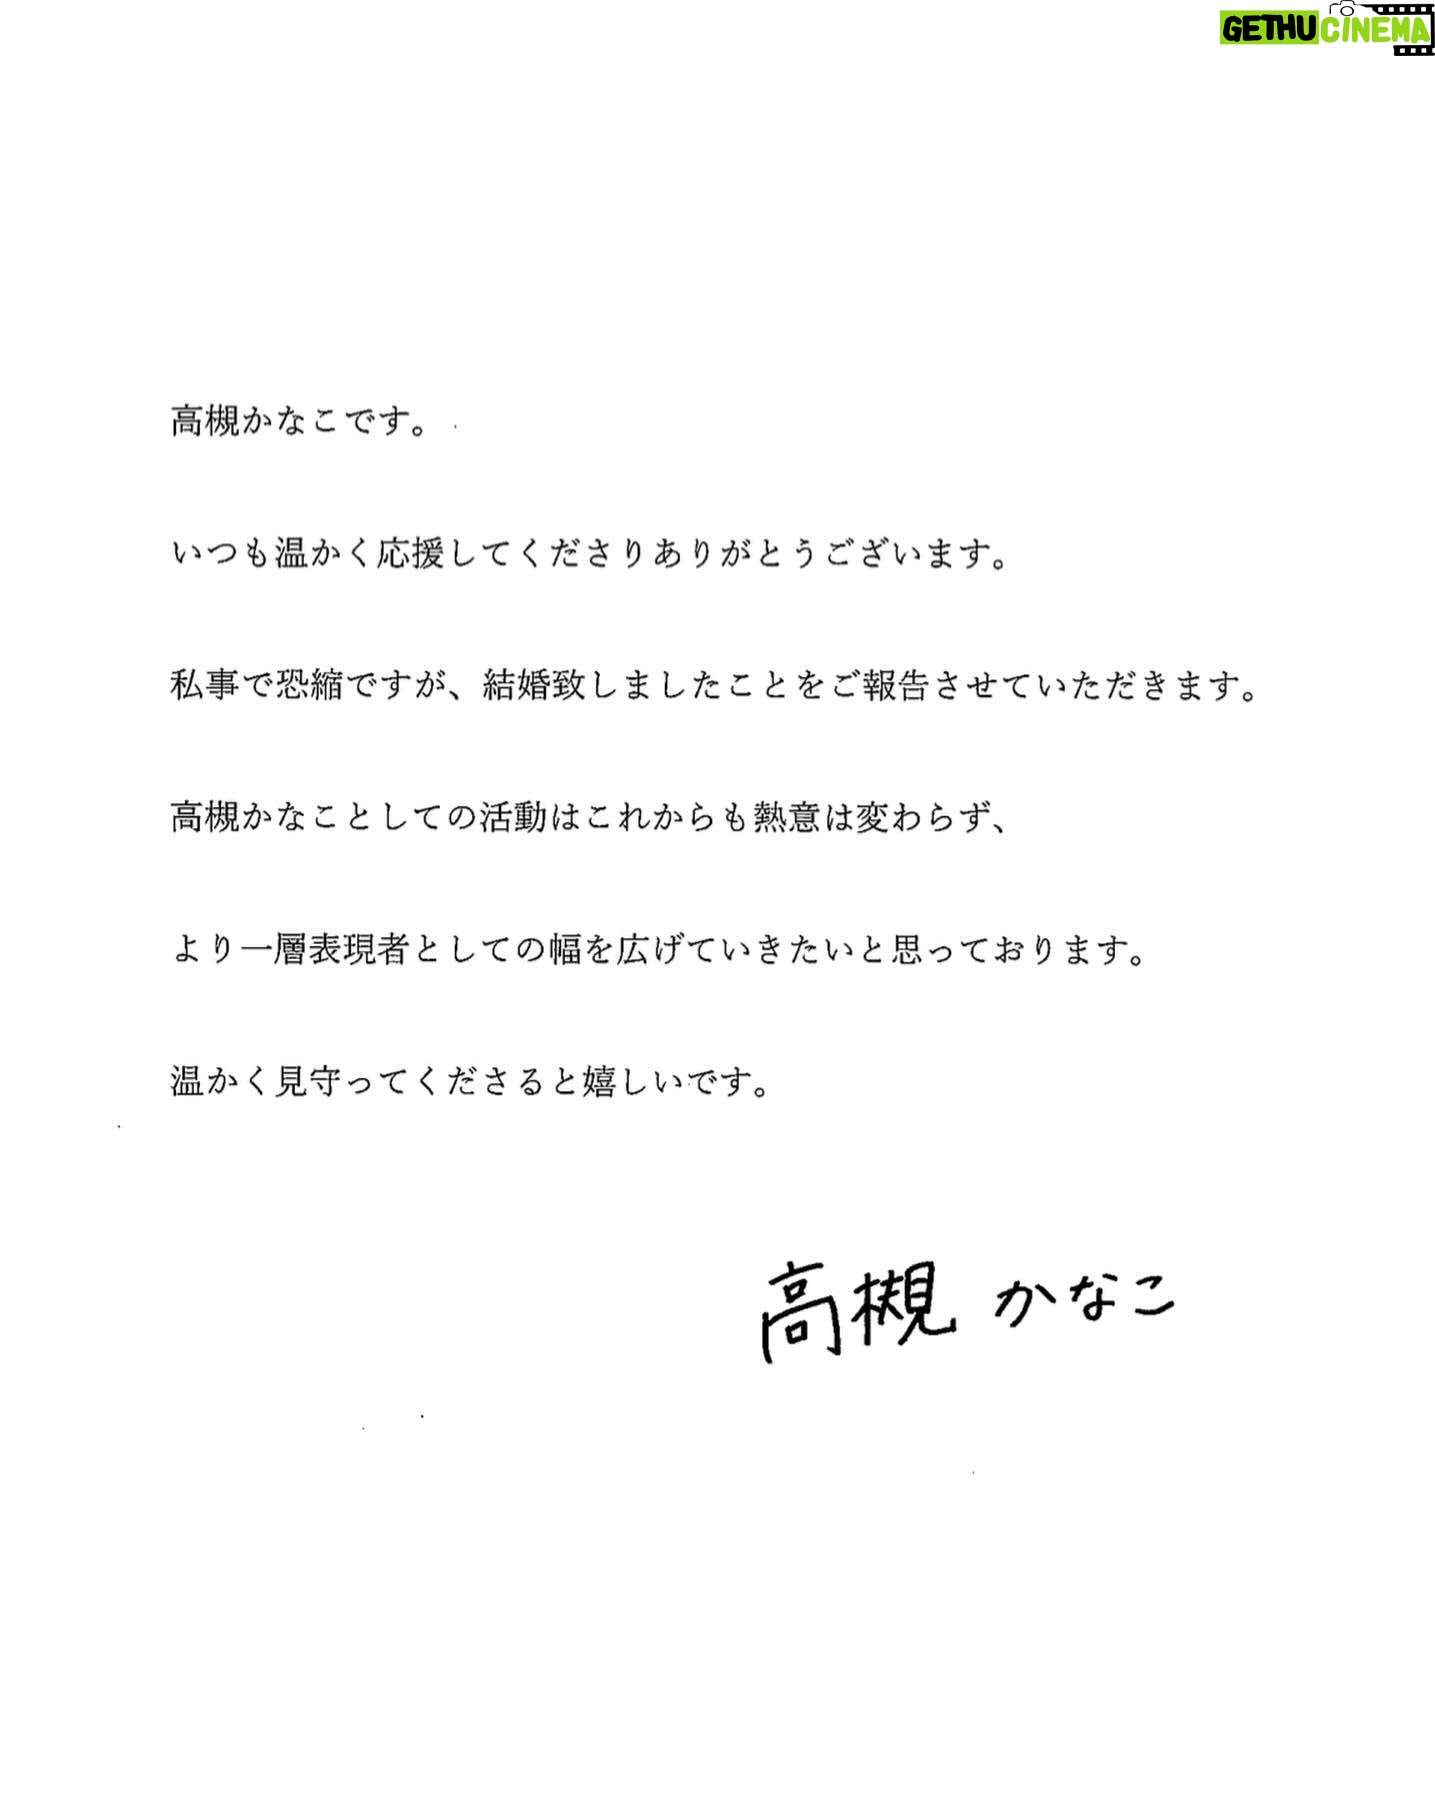 GETHUCINEMA
高槻かなこです。
いつも温かく応援してくださりありがとうございます。
私事で恐縮ですが、結婚致しましたことをご報告させていただきます。
高槻かなことしての活動はこれからも熱意は変わらず、
より一層表現者としての幅を広げていきたいと思っております。
温かく見守ってくださると嬉しいです。
高槻 かなこ